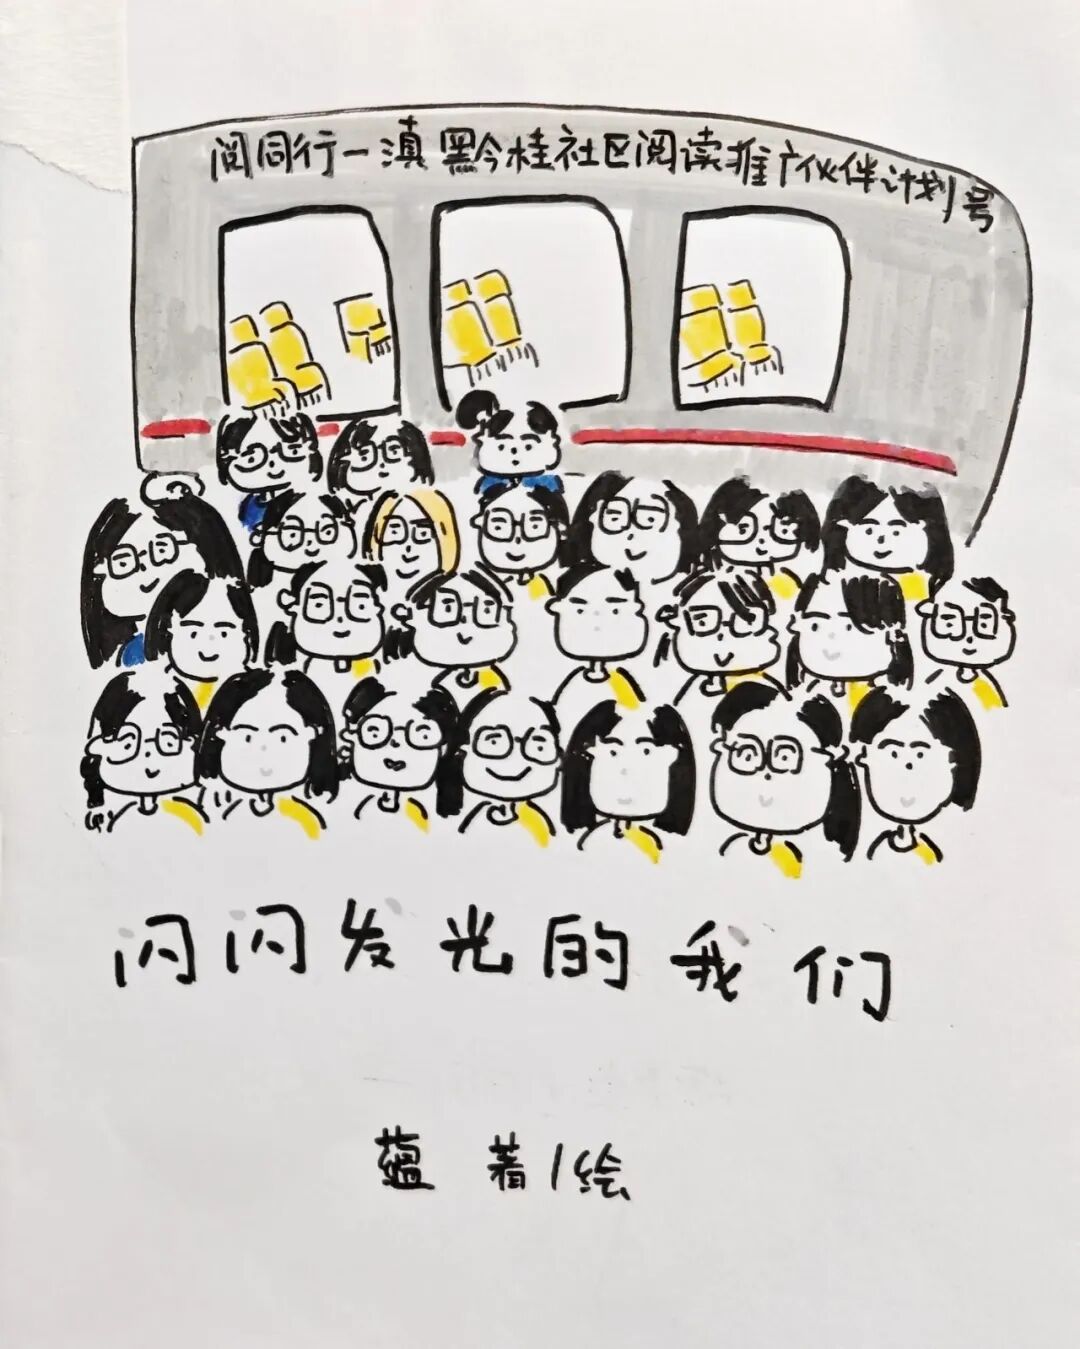 阅同行一滇黔桂社区阅读推广伙伴计划号
闪闪发光的我们
蕴 著/绘